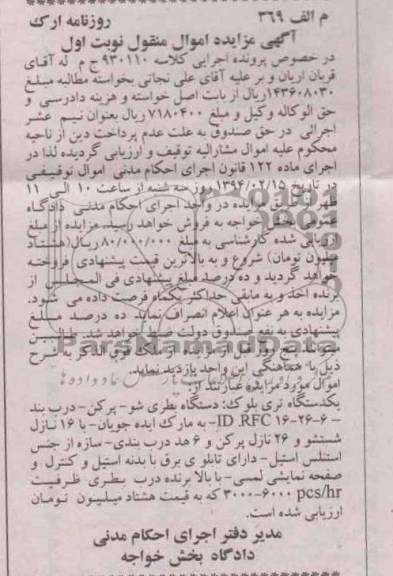 م الف ۳۶۹
روزنامه ارک
آگهی مزایده اموال منقول نوبت اول
در خصوص پرونده اجرایی کلاسه ۹۳۰۱۱۰ ج م له آقای
قربان اریان و بر علیه آقای علی نجاتی بخواسته مطالبه مبلغ
۱۴۳۶۰۸۰۳۰ ریال از بابت اصل خواسته و هزینه دادرسی و
حق الوکاله وکیل و مبلغ ۷۱۸۰۴۰۰ ریال بعنوان نیم عشر
اجرائی در حق صندوق به علت عدم پرداخت دین از ناحیه
محکوم علیه اموال مشارالیه توقیف و ارزیابی گردیده لذا در
اجرای ماده ۱۲۲ قانون اجرای احکام مدنی اموال توقیفی
در تاریخ ۱۳۹۴/۰۲/۱۵ روز سه شنبه از ساعت ۱۰ الی ۱۱
ظهر از طریق مزایده در واحد اجرای احکام مدنی دادگاه
عمومی بخش خواجه به فروش خواهد رسید. مزایده از مبلغ
ارزیابی شده کارشناسی به مبلغ ۸۰/۰۰۰/۰۰۰ ریال (هشتاد
میلیون تومان) شروع و به بالاترین قیمت پیشنهادی فروخته
خواهد گردید و ده درصد مبلغ پیشنهادی فی المجلس از
برنده اخذ و به مابقی حداکثر یکماه فرصت داده می شود.
مزایده به هر عنوان اعلام انصراف نماید ده درصد مبلغ
پیشنهادی به نفع صندوق دولت ضبط خواهد شد. طالبین
میتوانند پنج روز قبل از مزایده از ملک فوق الذکر به شرح
ذیل با هماهنگی این واحد بازدید نمایند.
اموال مورد مزایده عبارتند از:
یکدستگاه تری بلوک: دستگاه بطری شو - پرکن - درب بند
– ID .RFC ۱۶-۲۶-۶- به مارک ایده جویان - با ۱۶ نازل
شستشو و ۲۶ نازل پرکن و ۶ هد درب بندی - سازه از جنس
استنلس استیل - دارای تابلو ی برق با بدنه استیل و کنترل و
صفحه نمایشی لمسی - با بالا برنده درب بطری ظرفیت
۳۰۰۰-۶۰۰۰ pcs/hr که به قیمت هشتاد میلیون تومان
ارزیابی شده است.
مدیر دفتر اجرای احکام مدنی
دادگاه بخش خواجه
ParsNamadData